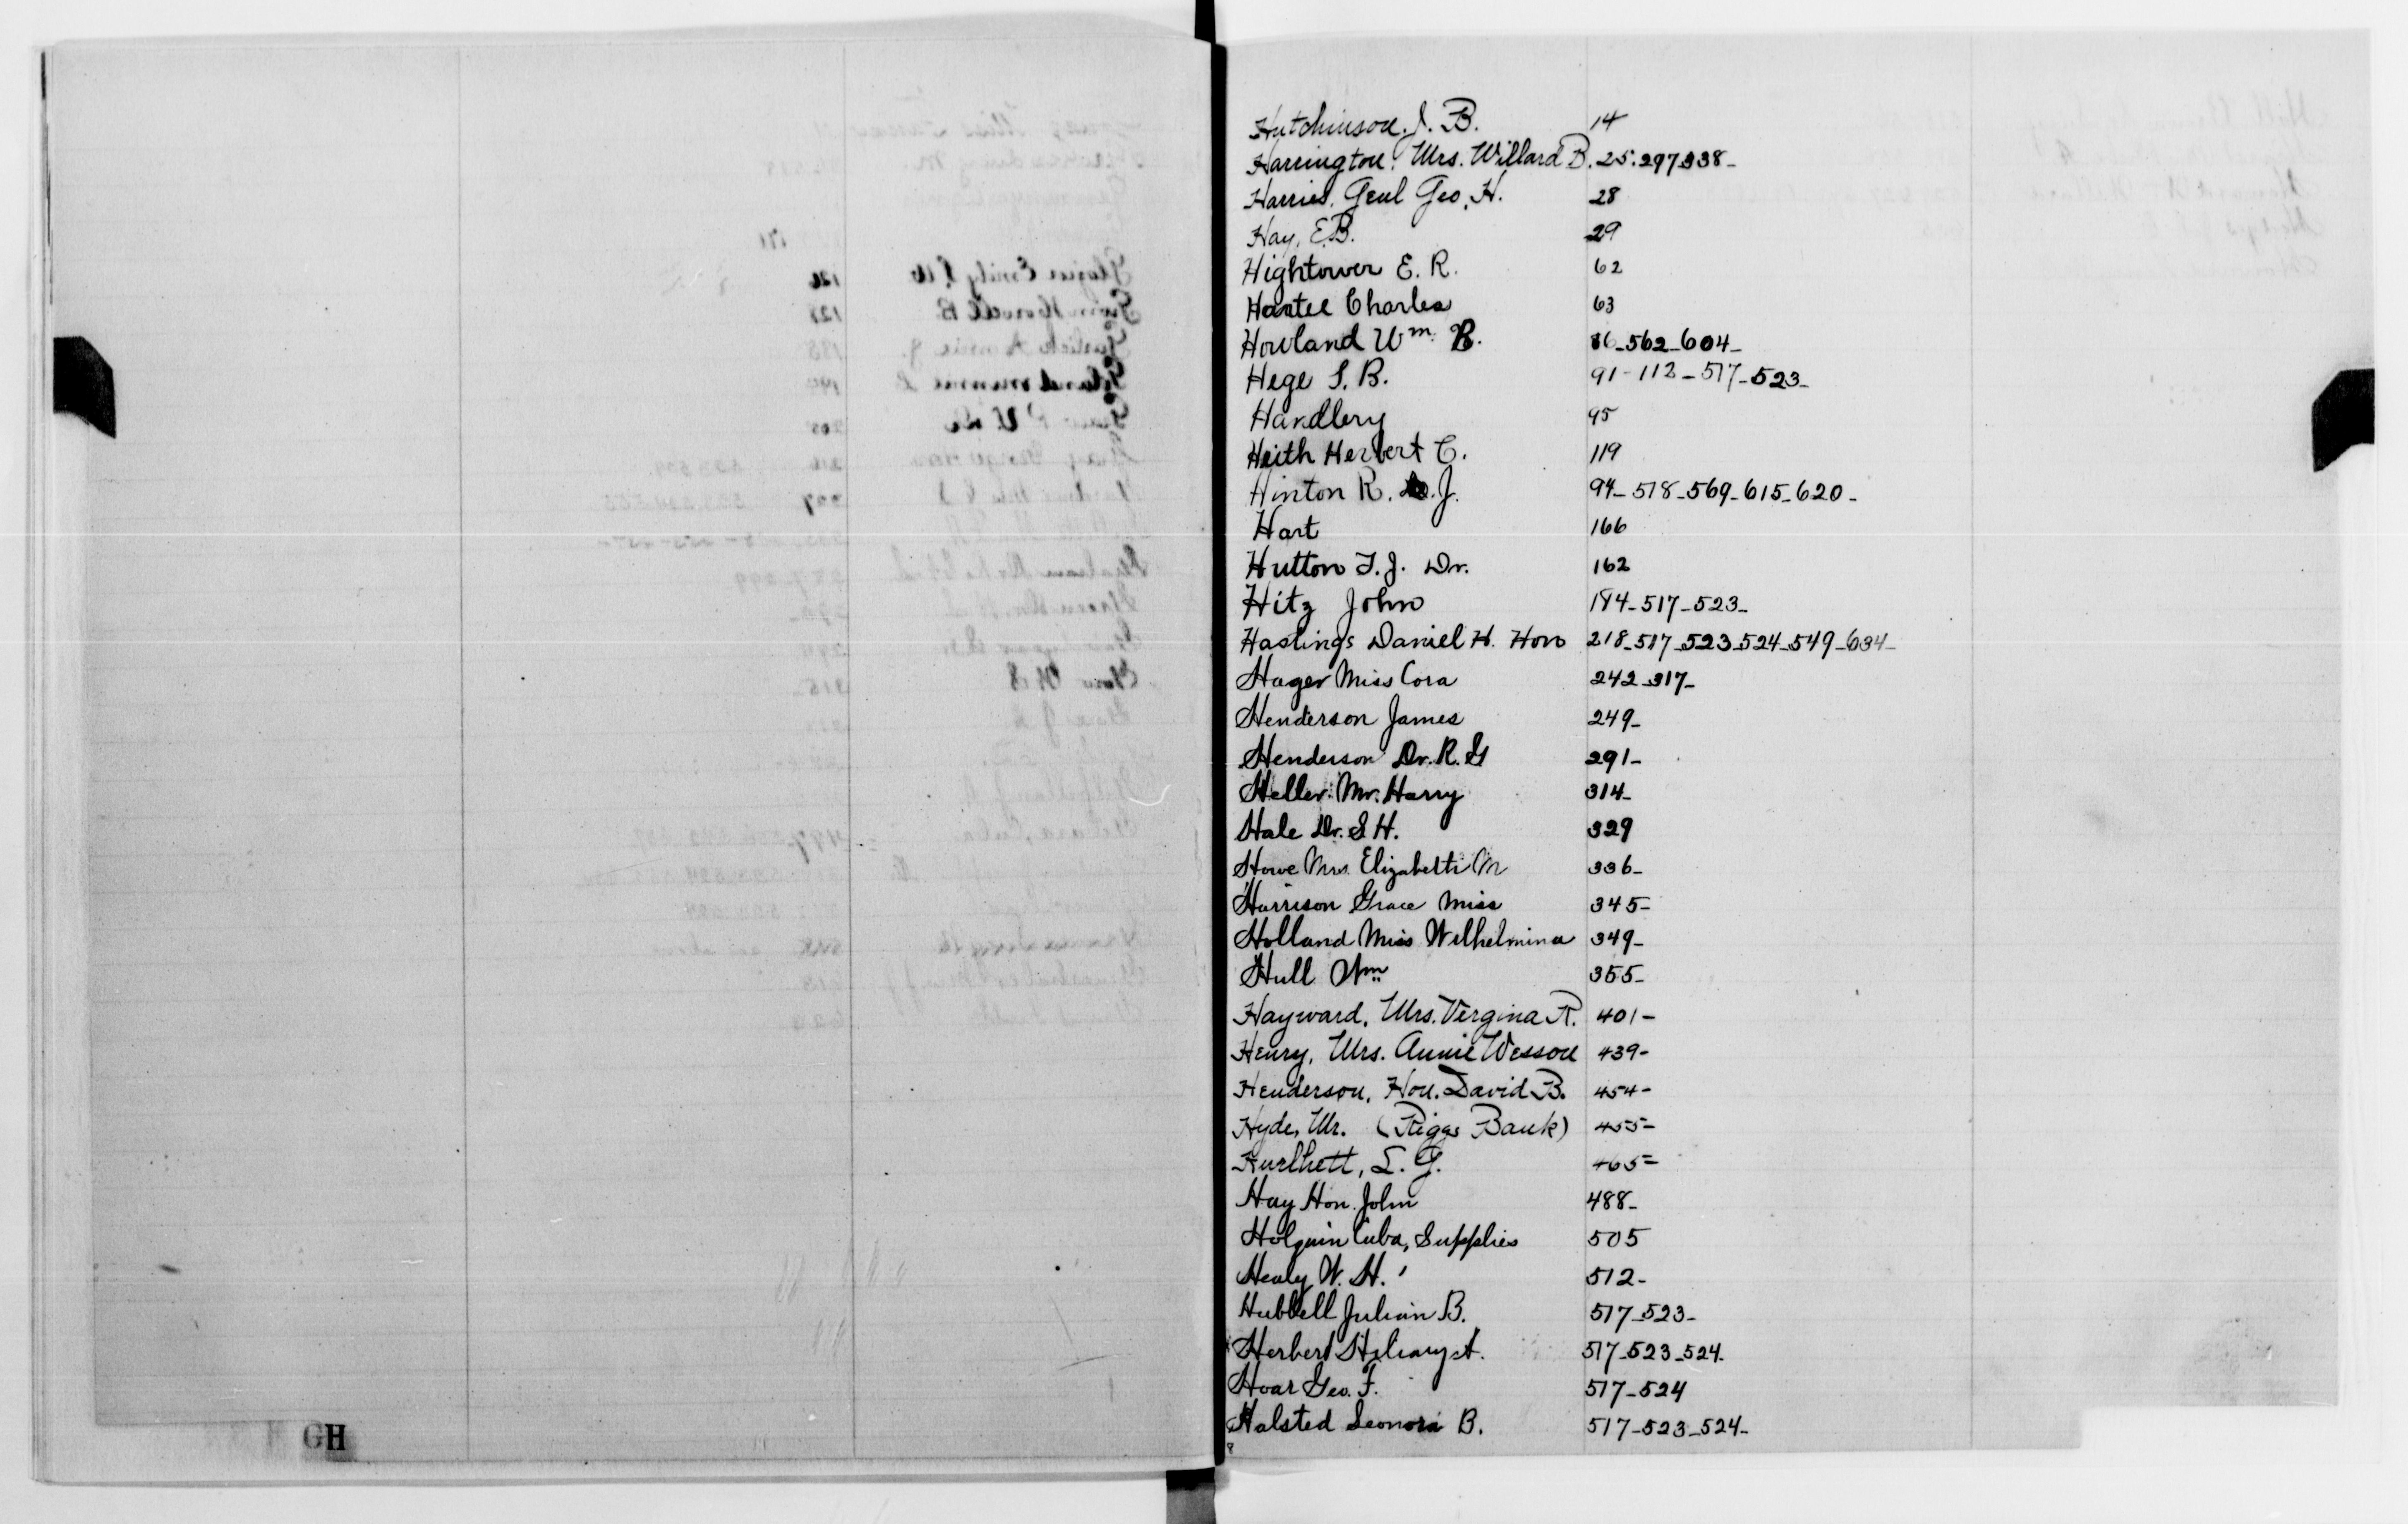 Hutchinson. J. B. 14
Harrington. Mrs. Willard B. 25. 297_338_
Harries. Genl Geo. H. 28
Hay, E.B. 29
Hightower E. R. 62
Hartel Charles 63
Howland Wm. B. 86_562_604_
Hege S. B. 91-112-517-523_
Handlery 95
Heith Herbert C. 119
Hinton R. J. 94_518_569_615_620_
Hart 166
Hutton T. J. Dr. 162
Hitz John 184_517_523_
Hastings Daniel H. Hon 218_517_523_524_549_634_
Hager Miss Cora 242_317_
Henderson James 249_
Henderson Dr. R. G 291_
Heller. Mr. Harry 314_
Hale Dr. S H. 329
Howe Mrs. Elizabeth M 336_
Harrison Grace Miss 345_
Holland Miss Wilhelmina 349_
Hull Wm 355_
Hayward, Mrs. Vergina R. 401-
Henry, Mrs. Annie Wesson 439-
Henderson, Hon. David B. 454-
Hyde, Mr. (Riggs Bank) 455-
Hurlhett, L. G. 465-
Hay Hon. John 488_
Holguin Cuba, Supplies 505
Healy W. H. 512_
Hubbell Julian B. 517_523_
Herbert Hilary A. 517_523_524_
Hoar Geo. F. 517_524
Halsted Leonora B. 517_523_524_
GH